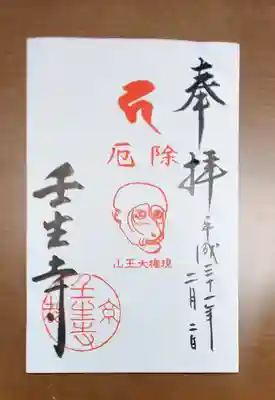 奉拝
平成三十一年
二月二日
厄除
山王大権現
壬生寺
壬生寺
京